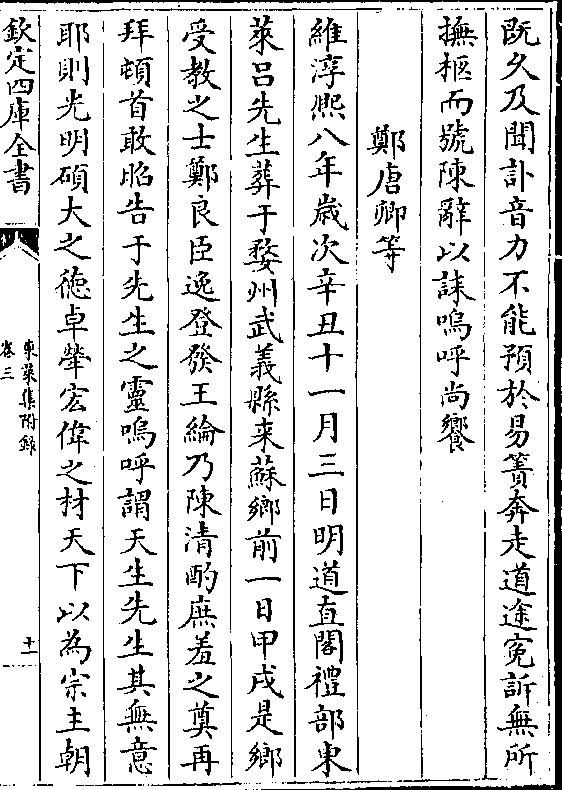 既久及聞訃音力不能預於易簀奔走道途寃訴無所
撫柩而號陳辭以誄嗚呼尚饗
鄭唐卿等
維淳熙八年歳次辛丑十一月三日明道直閣禮部東
萊吕先生葬于婺州武義縣来蘇鄉前一日甲戌是鄉
受教之士鄭良臣逸登發王綸乃陳清酌庶羞之奠再
拜頓首敢昭告于先生之靈嗚呼謂天生先生其無意
耶則光明碩大之徳卓犖宏偉之材天下以為宗主朝
欽定四庫全書
東萊集附錄
卷三
十一